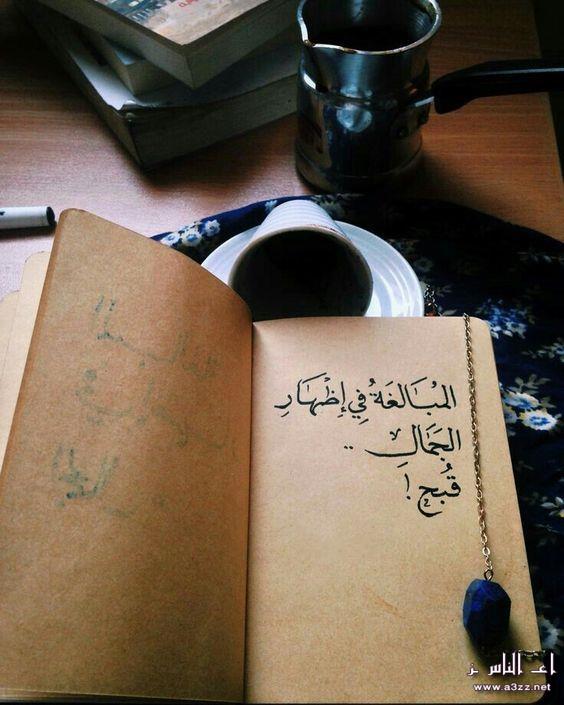 المُبَالغَةُ فِي إِظْهَارِ
الجَمَالِ ..
قُبح !
اعز الناس نز
www.a3zz.net